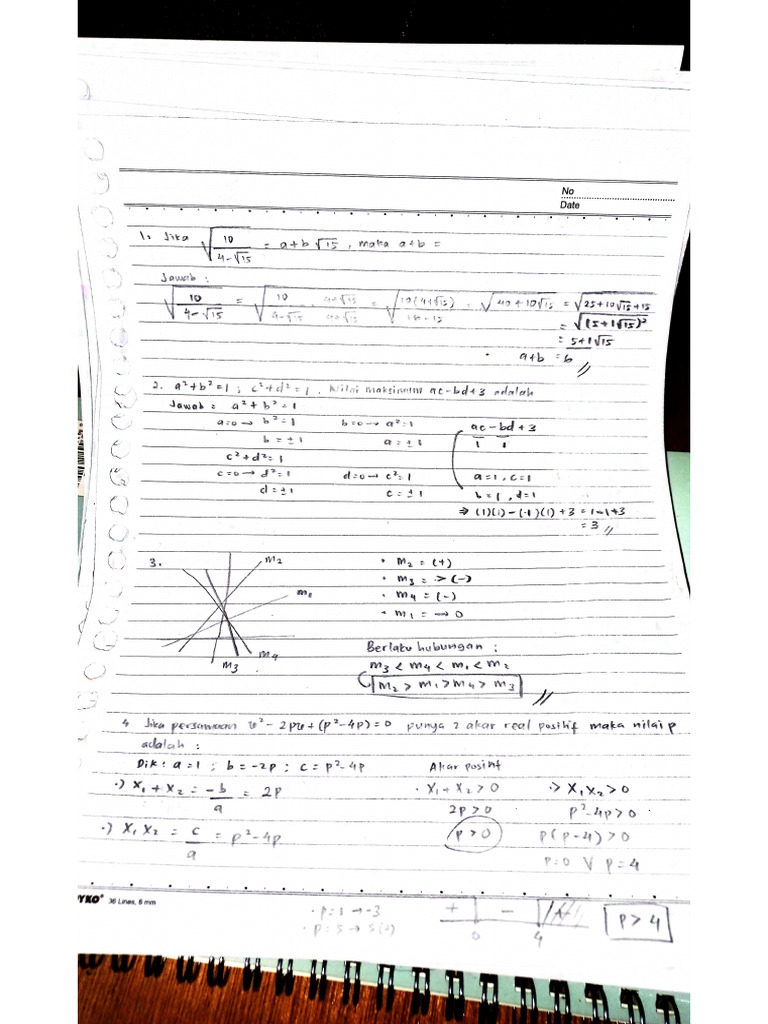 No
Date
1. Jika √(10/(4-√15)) = a+b√15, maka a+b =
Jawab :
√(10/(4-√15)) = √(10/(4-√15) · (4+√15)/(4+√15)) = √(10(4+√15)/(16-15)) = √(40+10√15) = √(25+10√15+15)
= √((5+1√15)²)
= 5+1√15
a+b = 6 //
2. a²+b²=1 ; c²+d²=1. Nilai maksimum ac-bd+3 adalah
Jawab : a²+b²=1
a=0 → b²=1 b=0 → a²=1 ac-bd+3
b=±1 a=±1 1 1
c²+d²=1
c=0 → d²=1 d=0 → c²=1 a=1, c=1
d=±1 c=±1 b=1, d=1
⇒ (1)(1)-(-1)(1)+3 = 1-1+3
= 3 //
3. m2 • m2 = (+)
• m3 = > (-)
m1 • m4 = (-)
• m1 = → 0
Berlaku hubungan :
m4
m3 m3 < m4 < m1 < m2
m2 > m1 > m4 > m3 //
4 Jika persamaan x²-2px+(p²-4p)=0 punya 2 akar real positif maka nilai p
adalah :
Dik : a=1 ; b=-2p ; c=p²-4p Akar positif
·) X1+X2 = -b/a = 2p · X1+X2>0 ·> X1X2>0
2p>0 p²-4p>0
·) X1X2 = c/a = p²-4p p>0 p(p-4)>0
p=0 V p=4
36 Lines, 6 mm
· p=1 → -3 + - + p>4
· p=5 → 5(+) 0 4